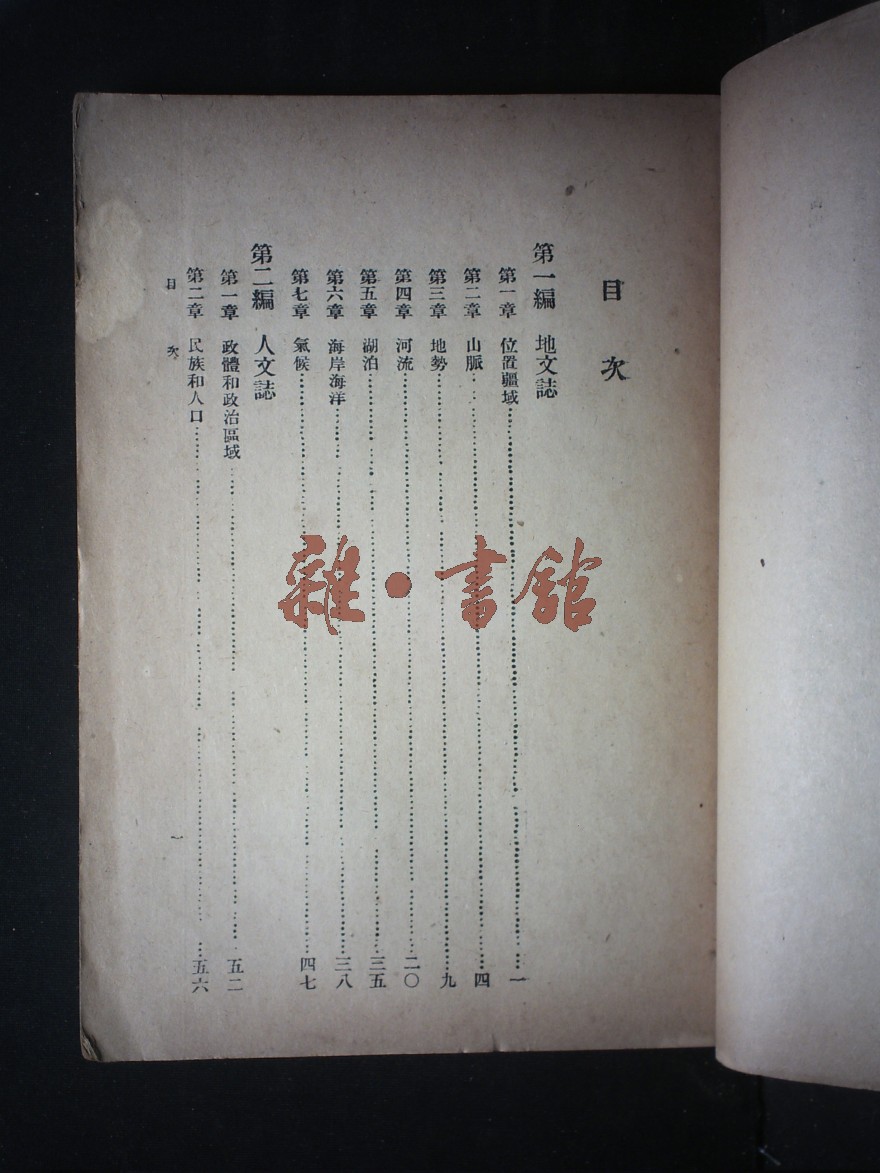 目次
第一編 地文誌
第一章 位置疆域……一
第二章 山脈……四
第三章 地勢……九
第四章 河流……二〇
第五章 湖泊……三五
第六章 海岸海洋……三八
第七章 氣候……四七
第二編 人文誌
第一章 政體和政治區域……五二
第二章 民族和人口……五六
目次
一
雜·書館